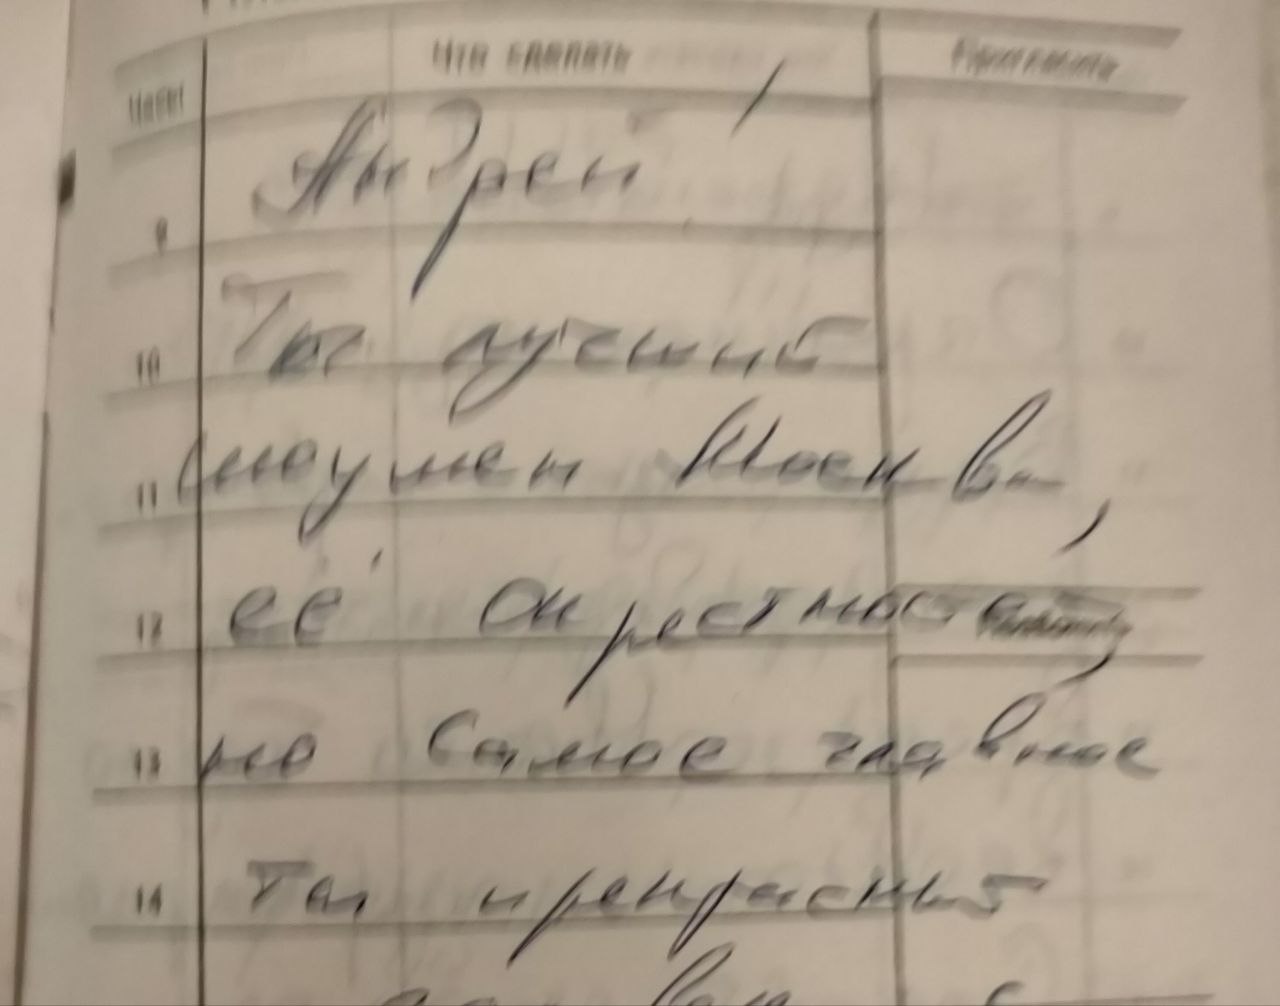 Что сделать
Часы
Андрей!
9
Ты лучший
10
шоумен Москвы,
11
её окрестностей,
12
но самое главное
13
Ты прекрасный
14